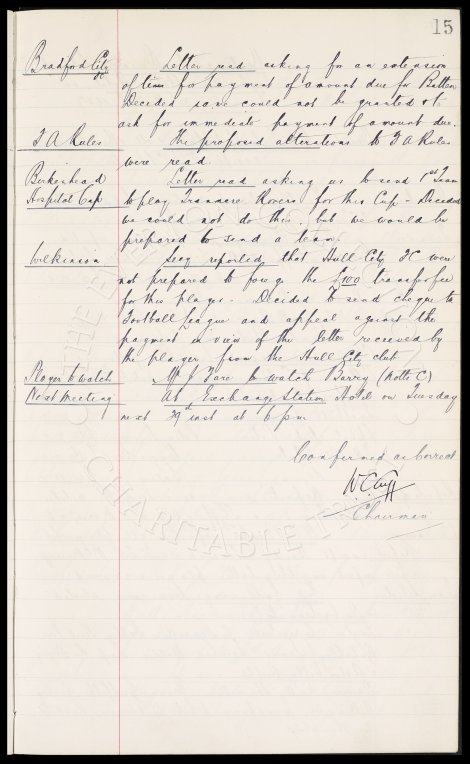 15
Bradford City Letter read asking for an extension
of time for payment of amount due for Batten
Decided same could not be granted & to
ask for immediate payment of amount due.
F A Rules The proposed alterations to F A Rules
were read.
Birkenhead Letter read asking us to send 1st Team
Hospital Cup to play Tranmere Rovers for this Cup - Decided
we could not do this, but we would be
prepared to send a team.
Wilkinson Secy reported that Hull City FC were
not prepared to forego the £100 transfer fee
for this player. Decided to send cheque to
Football League and appeal against the
payment in view of the letter received by
the player from the Hull City club
Player to watch Mr J to watch Barry (Notts C)
Next Meeting At Exchange Station Hotel on Tuesday
next inst at 6 pm
Confirmed as Correct
W.C. Cuff
Chairman
CHARITABLE